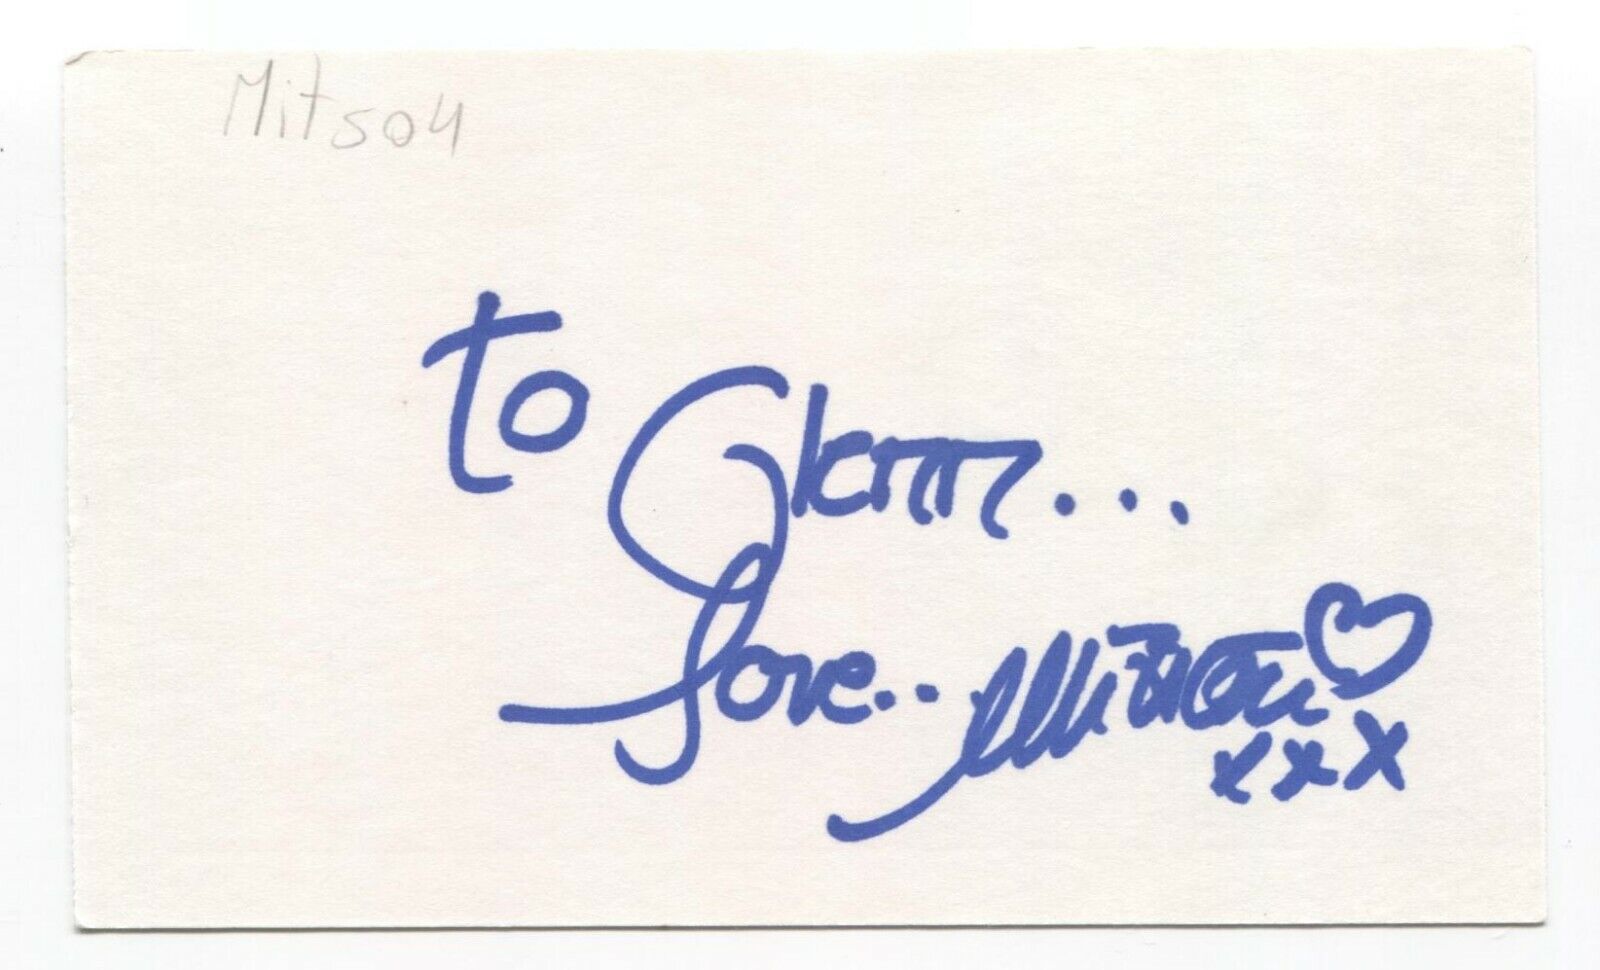 Mitsou
to Glenn...
Love.. Mitsou
xxx